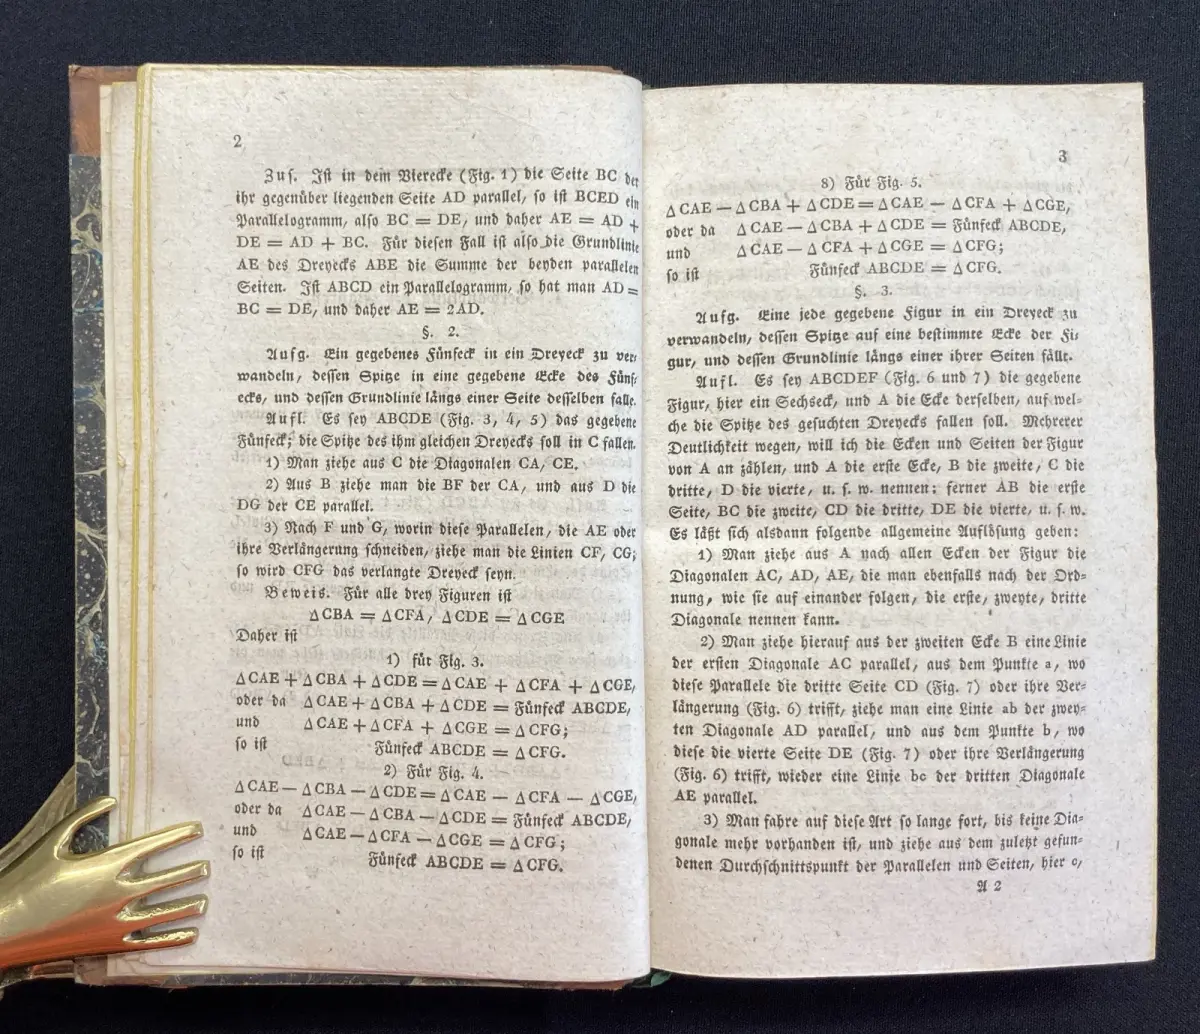 2
Zus. Ist in dem Vierecke (Fig. 1) die Seite BC der
ihr gegenüber liegenden Seite AD parallel, so ist BCED ein
Parallelogramm, also BC = DE, und daher AE = AD +
DE = AD + BC. Für diesen Fall ist also die Grundlinie
AE des Dreyecks ABE die Summe der beyden parallelen
Seiten. Ist ABCD ein Parallelogramm, so hat man AD =
BC = DE, und daher AE = 2AD.
§. 2.
Aufg. Ein gegebenes Fünfeck in ein Dreyeck zu ver-
wandeln, dessen Spitze in eine gegebene Ecke des Fünf-
ecks, und dessen Grundlinie längs einer Seite desselben falle.
Aufl. Es sey ABCDE (Fig. 3, 4, 5) das gegebene
Fünfeck; die Spitze des ihm gleichen Dreyecks soll in C fallen.
1) Man ziehe aus C die Diagonalen CA, CE.
2) Aus B ziehe man die BF der CA, und aus D die
DG der CE parallel.
3) Nach F und G, worin diese Parallelen, die AE oder
ihre Verlängerung schneiden, ziehe man die Linien CF, CG;
so wird CFG das verlangte Dreyeck seyn.
Beweis. Für alle drey Figuren ist
△CBA = △CFA, △CDE = △CGE
Daher ist
1) für Fig. 3.
△CAE + △CBA + △CDE = △CAE + △CFA + △CGE,
oder da △CAE + △CBA + △CDE = Fünfeck ABCDE,
und △CAE + △CFA + △CGE = △CFG;
so ist Fünfeck ABCDE = △CFG.
2) Für Fig. 4.
△CAE — △CBA — △CDE = △CAE — △CFA — △CGE,
oder da △CAE — △CBA — △CDE = Fünfeck ABCDE,
und △CAE — △CFA — △CGE = △CFG;
so ist Fünfeck ABCDE = △CFG.
3
8) Für Fig. 5.
△CAE — △CBA + △CDE = △CAE — △CFA + △CGE,
oder da △CAE — △CBA + △CDE = Fünfeck ABCDE,
und △CAE — △CFA + △CGE = △CFG;
so ist Fünfeck ABCDE = △CFG.
§. 3.
Aufg. Eine jede gegebene Figur in ein Dreyeck zu
verwandeln, dessen Spitze auf eine bestimmte Ecke der Fi-
gur, und dessen Grundlinie längs einer ihrer Seiten fällt.
Aufl. Es sey ABCDEF (Fig. 6 und 7) die gegebene
Figur, hier ein Sechseck, und A die Ecke derselben, auf wel-
che die Spitze des gesuchten Dreyecks fallen soll. Mehrerer
Deutlichkeit wegen, will ich die Ecken und Seiten der Figur
von A an zählen, und A die erste Ecke, B die zweite, C die
dritte, D die vierte, u. s. w. nennen; ferner AB die erste
Seite, BC die zweite, CD die dritte, DE die vierte, u. s. w.
Es läßt sich alsdann folgende allgemeine Auflösung geben:
1) Man ziehe aus A nach allen Ecken der Figur die
Diagonalen AC, AD, AE, die man ebenfalls nach der Ord-
nung, wie sie auf einander folgen, die erste, zweyte, dritte
Diagonale nennen kann.
2) Man ziehe hierauf aus der zweiten Ecke B eine Linie
der ersten Diagonale AC parallel, aus dem Punkte a, wo
diese Parallele die dritte Seite CD (Fig. 7) oder ihre Ver-
längerung (Fig. 6) trifft, ziehe man eine Linie ab der zwey-
ten Diagonale AD parallel, und aus dem Punkte b, wo
diese die vierte Seite DE (Fig. 7) oder ihre Verlängerung
(Fig. 6) trifft, wieder eine Linie bc der dritten Diagonale
AE parallel.
3) Man fahre auf diese Art so lange fort, bis keine Dia-
gonale mehr vorhanden ist, und ziehe aus dem zuletzt gefun-
denen Durchschnittspunkt der Parallelen und Seiten, hier c,
A 2